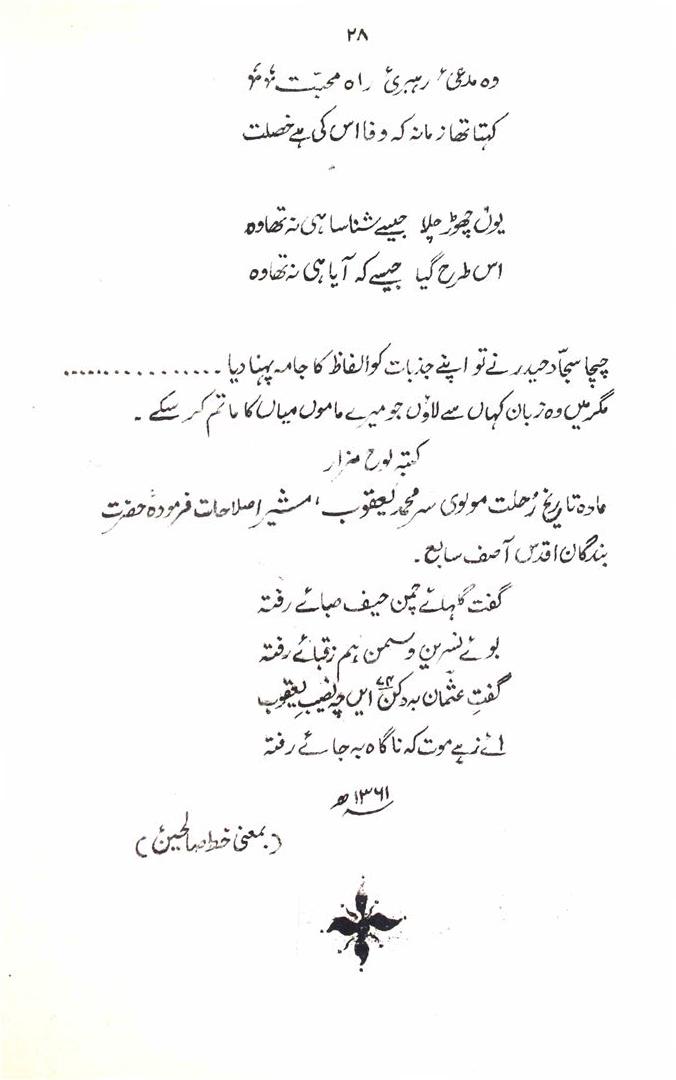 ۲۸
وہ مدعیٔ رہبریٔ راہ محبّت
کہتا تھا زمانہ کہ وفا اس کی ہے خصلت
یوں چھوڑ چلا جیسے شناسا ہی نہ تھا وہ
اس طرح گیا جیسے کہ آیا ہی نہ تھا وہ
چچا سجّاد حیدر نے تو اپنے جذبات کو الفاظ کا جامہ پہنا دیا ...............
مگر میں وہ زبان کہاں سے لاؤں جو میرے ماموں میاں کا ماتم کر سکے ۔
کتبہ لوح مزار
مادہ تاریخ رُحلت مولوی سر محمد یعقوب ، مشیر اصلاحات فرمودۂ حضرت
بندگان اقدس آصف سابع ۔
گفت گلہائے چمن حیف صبائے رفتہ
بوئے نسرین و سمن ہم زقبائے رفتہ
گفتِ عثمان بہ دکن ایں چہ نصیبِ یعقوب
اے زہے موت کہ ناگاہ بہ جائے رفتہ
۱۳۶۱ ھ
( بمعنی خط صالحین )